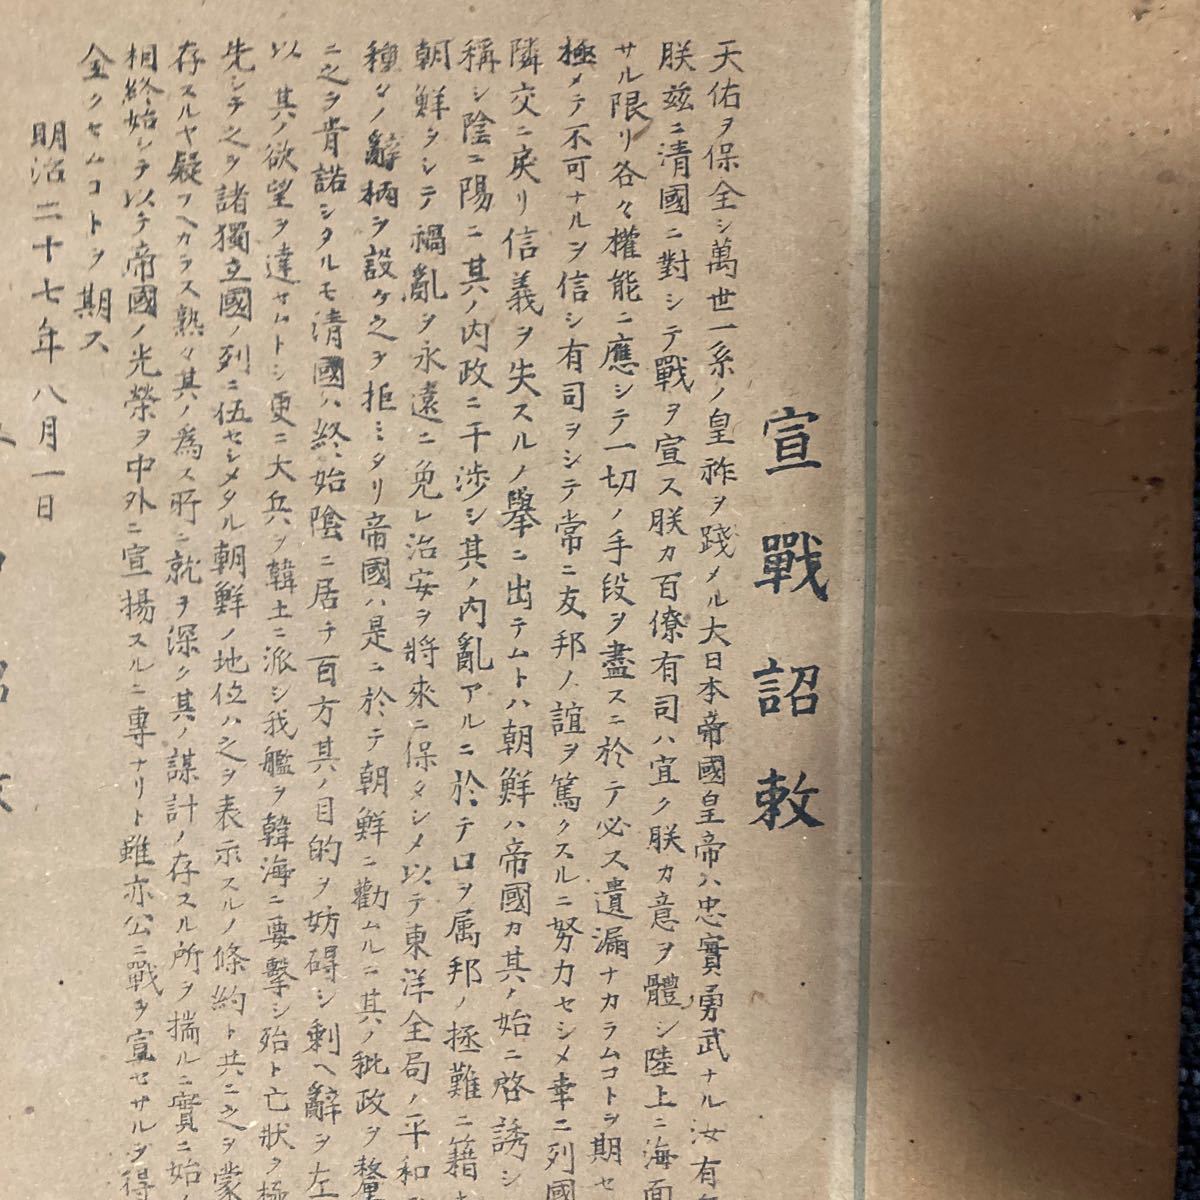 宣戰詔敕
天佑ヲ保全シ萬世一系ノ皇祚ヲ踐メル大日本帝國皇帝ハ忠實勇武ナル汝有
朕玆ニ清國ニ對シテ戰ヲ宣ス朕カ百僚有司ハ宜ク朕カ意ヲ體シ陸上ニ海面
サル限リ各々權能ニ應シテ一切ノ手段ヲ盡スニ於テ必ス遺漏ナカラムコトヲ期セ
極メテ不可ナルヲ信シ有司ヲシテ常ニ友邦ノ誼ヲ篤クスルニ努力セシメ幸ニ列國
隣交ニ戾リ信義ヲ失スルノ擧ニ出テムトハ朝鮮ハ帝國カ其ノ始ニ啓誘シ
稱シ陰ニ陽ニ其ノ内政ニ干涉シ其ノ内亂アルニ於テ口ヲ属邦ノ拯難ニ籍
朝鮮ヲシテ禍亂ヲ永遠ニ免レ治安ヲ將來ニ保タシメ以テ東洋全局ノ平和
種々ノ辭柄ヲ設ケ之ヲ拒ミタリ帝國ハ是ニ於テ朝鮮ニ勸ムルニ其ノ秕政ヲ釐
ニ之ヲ肯諾シタルモ清國ハ終始陰ニ居テ百方其ノ目的ヲ妨碍シ剩ヘ辭ヲ左
以其ノ欲望ヲ達セムトシ更ニ大兵ヲ韓土ニ派シ我艦ヲ韓海ニ要擊シ殆ト亡狀ヲ極
先シテ之ヲ諸獨立國ノ列ニ伍セシメタル朝鮮ノ地位ハ之ヲ表示スルノ條約ト共ニ之ヲ蒙
存スルヤ疑フヘカラス熟々其ノ爲ス所ニ就テ深ク其ノ謀計ノ存スル所ヲ揣ルニ實ニ始メ
相終始シテ以テ帝國ノ光榮ヲ中外ニ宣揚スルニ專ナリト雖亦公ニ戰ヲ宣セサルヲ得
全クセムコトヲ期ス
明治二十七年八月一日